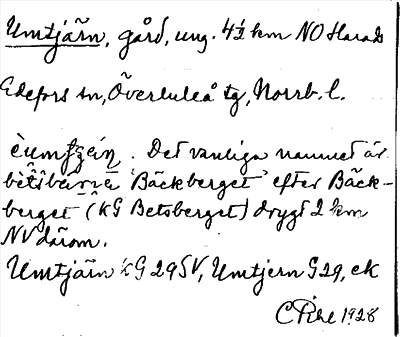 Umtjärn, gård, ung. 4½ km NO Harads
Edefors sn, Överluleå tg, Norrb. l.
Det vanliga namnet är
"Bäckberget" efter Bäck-
berget (KG Betsberget) drygt 2 km
NV därom.
Umtjärn KG 29 SV, Umtjern G 29, ek
C Pihl 1928